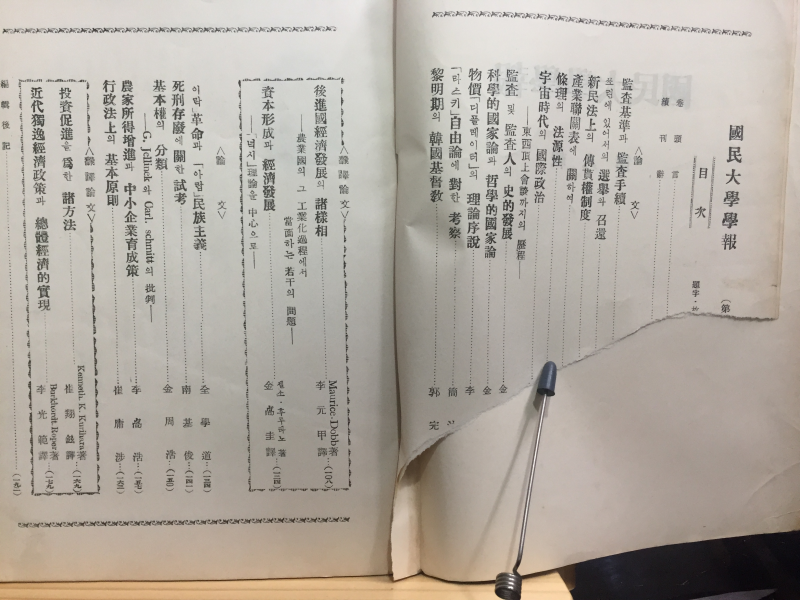 國民大學學報
目次
(第
題字·
卷頭言
續刊辭
〈論文〉
監査基準과 監査手續
쏘련에 있어서의 選擧와 召還
新民法上의 傳貰權制度
產業聯關表에 關하여
條理의 法源性
宇宙時代의 國際政治
——東西頂上會談까지의 歷程——
監査 및 監査人의 史的發展 金
科學的國家論과 哲學的國家論 金
物價「디플레이터」의 理論序說 李
「라스키」自由論에 對한 考察 簡
黎明期의 韓國基督敎 郭 完
〈飜譯論文〉
後進國經濟發展의 諸樣相 Maurice.Dobb著 李元甲譯 (108)
——農業國의 그 工業化過程에서
當面하는 若干의 問題——
資本形成과 經濟發展 著 金 圭譯 (一二四)
「넉시」理論을 中心으로——
〈論文〉
이락」革命과 「아랍」民族主義 全學道 (一三四)
死刑存廢에 關한 試考 南基俊
基本權의 分類 金周浩
——G. Jellinek와 Carl. schmitt의 批判——
農家所得增進과 中小企業育成策 李 浩
行政法上의 基本原則 崔庸涉
〈飜譯論文〉
投資促進을 爲한 諸方法 Kenneth. K. Kurihara著 崔翔 譯
近代獨逸經濟政策과 總體經濟的實現 Burkhardt. Roper著 李光範譯
編輯後記